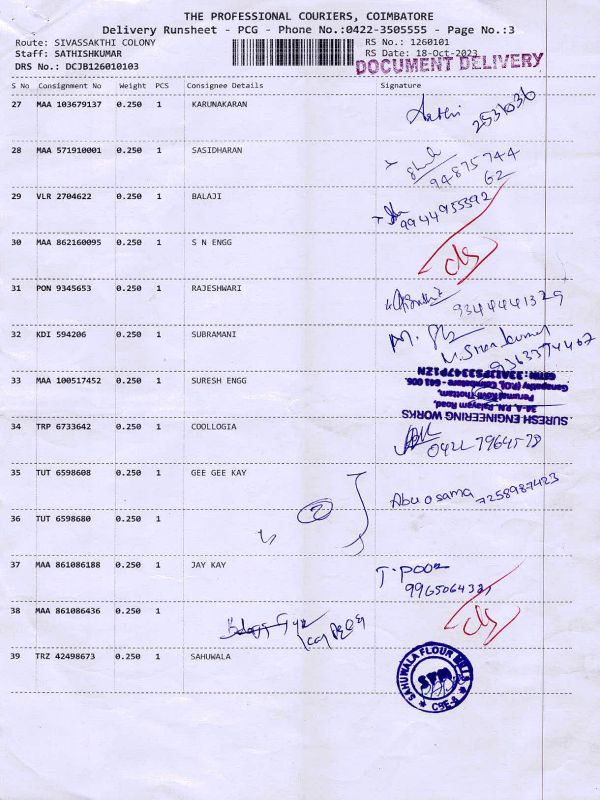 THE PROFESSIONAL COURIERS, COIMBATORE
Delivery Runsheet - PCG - Phone No.:0422-3505555 - Page No.:3
Route: SIVASSAKTHI COLONY RS No.: 1260101
Staff: SATHISHKUMAR RS Date: 18-Oct-2023
DRS No.: DCJB126010103 DOCUMENT DELIVERY
S No Consignment No Weight PCS Consignee Details Signature
27 MAA 103679137 0.250 1 KARUNAKARAN
28 MAA 571910001 0.250 1 SASIDHARAN
94875744
62
29 VLR 2704622 0.250 1 BALAJI
9944955392
30 MAA 862160095 0.250 1 S N ENGG
31 PON 9345653 0.250 1 RAJESHWARI
9344441329
32 KDI 594206 0.250 1 SUBRAMANI
M.Sivakumar
9363394467
33 MAA 100517452 0.250 1 SURESH ENGG
SURESH ENGINEERING WORKS
34-A, P.N. Palayam Road,
Perumal Kovil Thottam,
Ganapathy (P.O), Coimbatore - 641 006.
34 TRP 6733642 0.250 1 COOLLOGIA
0422 7964578
35 TUT 6598608 0.250 1 GEE GEE KAY
Abu osama 7258987423
36 TUT 6598680 0.250 1
2
37 MAA 861086188 0.250 1 JAY KAY
T. Poo
38 MAA 861086436 0.250 1
39 TRZ 42498673 0.250 1 SAHUWALA
SAHUWALA FLOUR MILLS
SFM
CBE-4